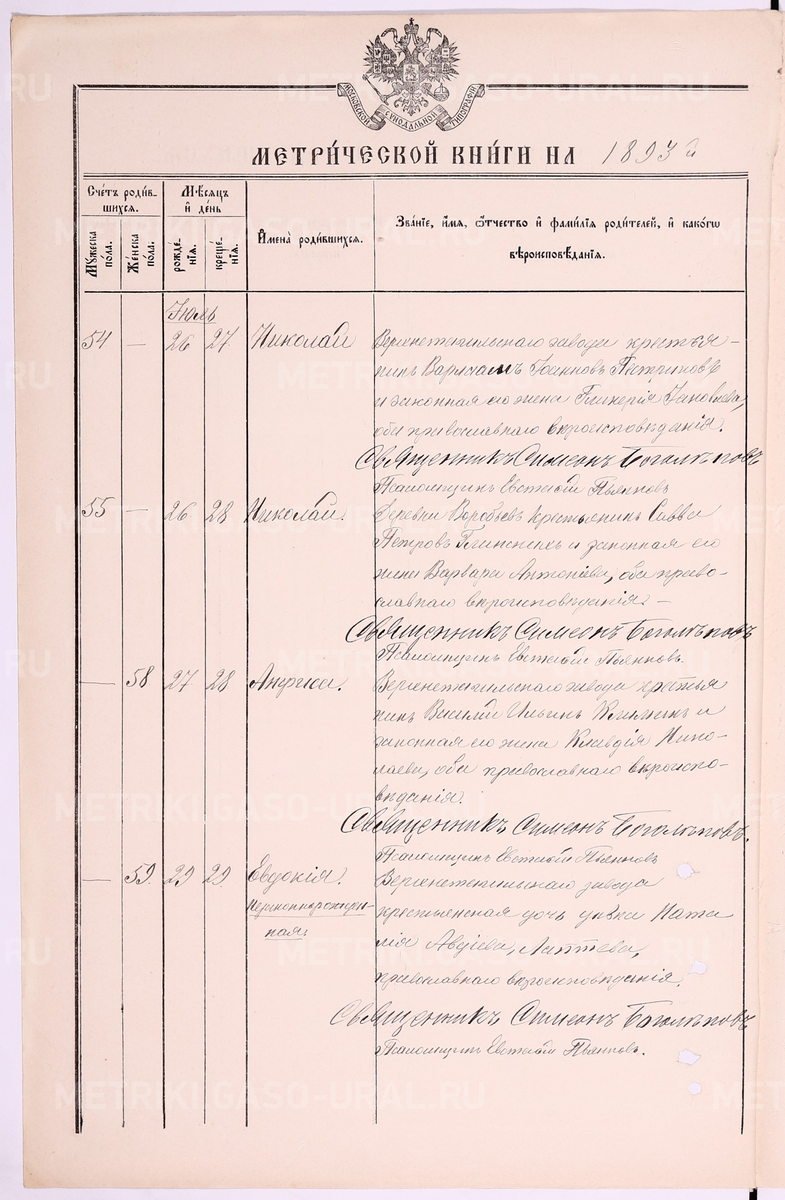 МОСКОВСКОЙ СИНОДАЛЬНОЙ ТИПОГРАФІИ
МЕТРИ́ЧЕСКОЙ КНИ́ГИ НА 1893 й
Сче́тъ роди́вшихся.
Мꙋ́жеска по́ла.
Же́нска по́ла.
Мѣ́сѧцъ и҆ де́нь
рожде́нїѧ.
креще́нїѧ.
И҆мена̀ роди́вшихсѧ.
Зва́нїе, и҆́мѧ, ѻ҆́тчество и҆ фами́лїѧ роди́телей, и҆ како́гѡ
вѣроисповѣ́данїѧ.
Іюль
54 — 26 27 Николай Верхнетагильскаго завода крестья-
нинъ Варлаамъ Іоанновъ
и законная его жена Гликерія Іаковлева,
оба православнаго вѣроисповѣданія.
Священникъ Симеонъ Боголѣповъ
Псаломщикъ Евстафій Пьянковъ
55 — 26 28 Николай. Деревни Воробьевъ крестьянинъ Савва
Петровъ и законная его
жена Варвара Антонiева, оба право-
славнаго вѣроисповѣданія. —
Священникъ Симеонъ Боголѣповъ
Псаломщикъ Евстафій Пьянковъ.
— 58 27 28 Анфиса. Верхнетагильскаго завода крестья
нинъ Василій Ильинъ и
законная его жена Клавдія Нико-
лаева, оба православнаго вѣроиспо-
вѣданія.
Священникъ Симеонъ Боголѣповъ.
Псаломщикъ Евстафій Пьянковъ
— 59. 29 29 Евдокія. Верхнетагильскаго завода
Незаконнорожден-
ная. крестьянская дочь дѣвка Ната
лія Авдіева, Лаптева,
православнаго вѣроисповѣданія.
Священникъ Симеонъ Боголѣповъ
Псаломщикъ Евстафій Пьянковъ.
METRIKI.GASO-URAL.RU